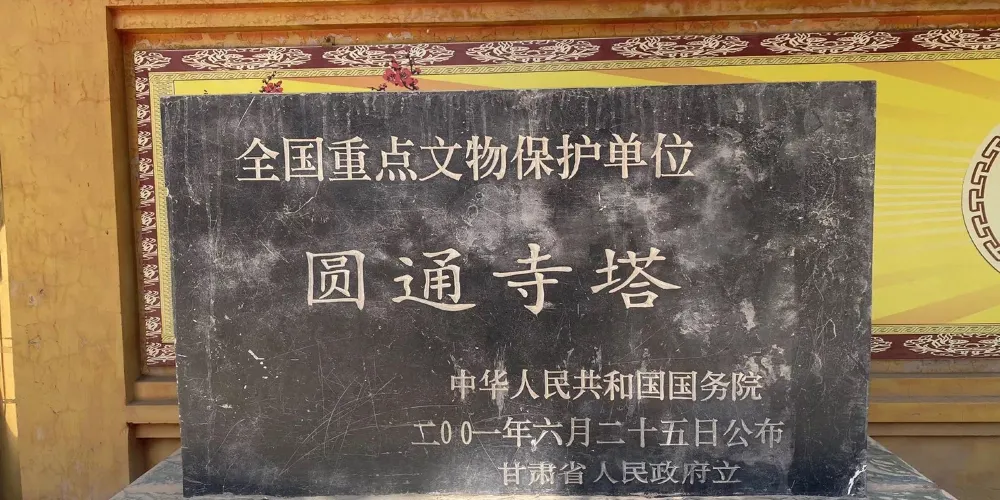 全国重点文物保护单位
圆通寺塔
中华人民共和国国务院
二00一年六月二十五日公布
甘肃省人民政府立